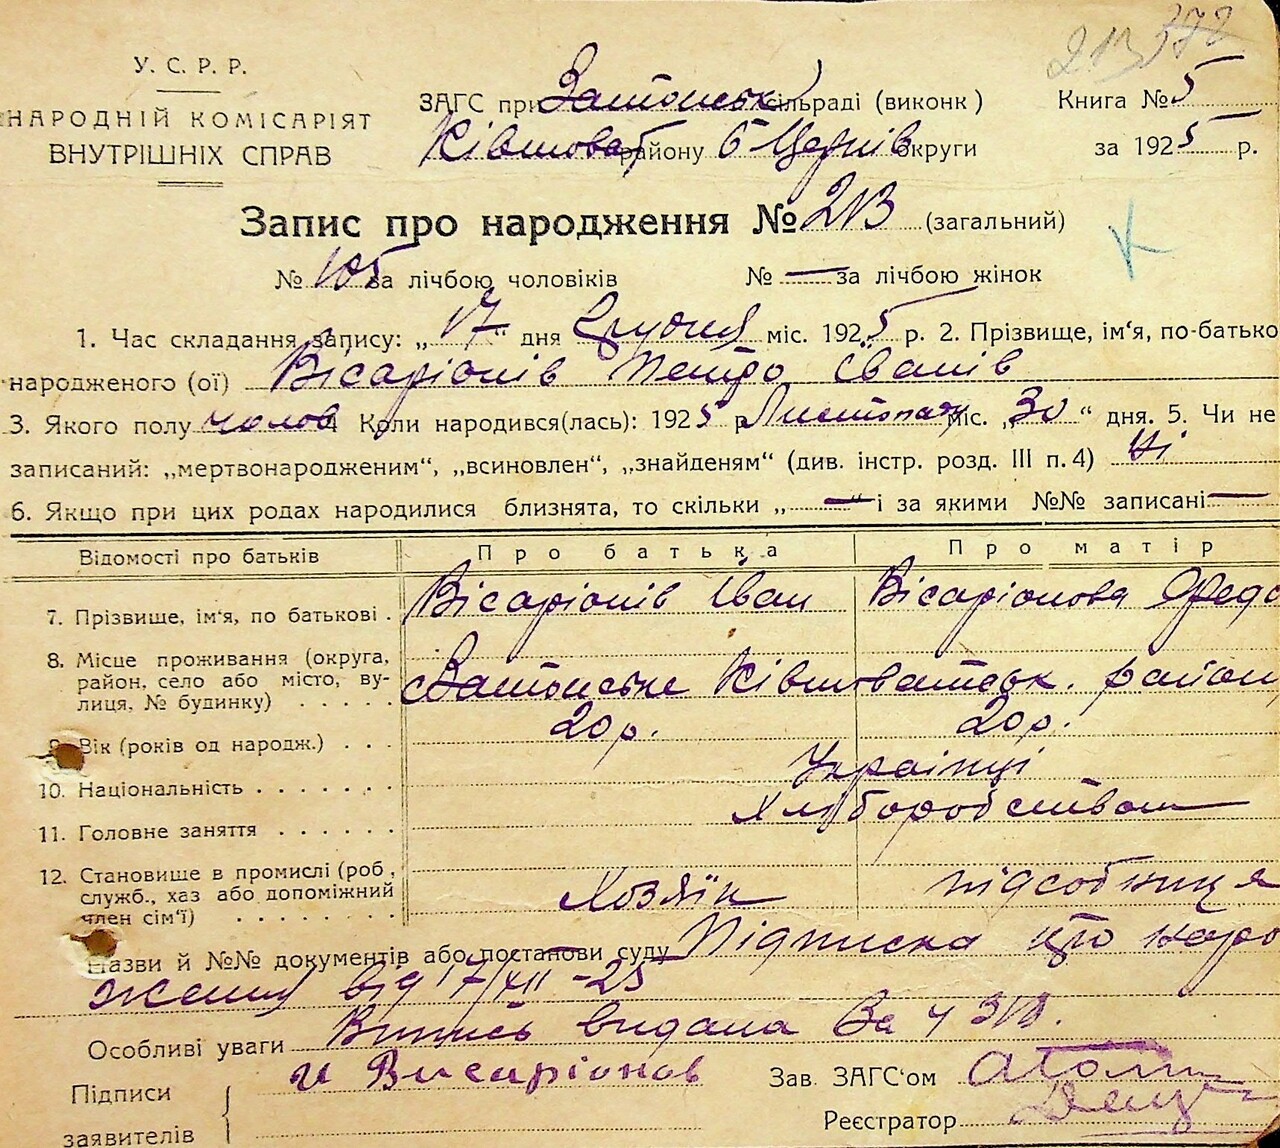 213 372
У. С. Р. Р.
НАРОДНІЙ КОМІСАРІЯТ
ВНУТРІШНІХ СПРАВ
ЗАГС при Затонськ сільраді (виконк)
Книга № 5
Ківшоват району Б Церків округи
за 1925 р.
Запис про народження № 213 (загальний)
№ 105 за лічбою чоловіків № — за лічбою жінок
К
1. Час складання запису: „17“ дня Грудня міс. 1925 р. 2. Прізвище, ім‘я, по-батько
народженого (ої) Вісаріонів Петро Іванів
3. Якого полу чолов 4 Коли народився(лась): 1925 р Листопад міс. „30“ дня. 5. Чи не
записаний: „мертвонародженим“, „всиновлен“, „знайденям“ (див. інстр. розд. III п. 4) Ні
6. Якщо при цих родах народилися близнята, то скільки „—“ і за якими №№ записані —
Відомості про батьків Про батька Про матір
7. Прізвище, ім‘я, по батькові . Вісаріонів Іван Вісаріонова Федо
8. Місце проживання (округа,
район, село або місто, ву-
лиця, № будинку) . . . . . Затонське Ківшоватськ. район
9. Вік (років од народж.) . . . 20 р. 20 р.
10. Національність . . . . . . . Українці
11. Головне заняття . . . . . . Хліборобством
12. Становище в промислі (роб,
служб., хаз або допоміжний
член сім‘ї) . . . . . . . . Хозяїн підсобниця
Назви й №№ документів або постанови суду Підписка про наро
ження від 17/XII - 25
Особливі уваги Випись видана За ч 313.
Підписи
заявителів
И Висаріонов
Зав. ЗАГС‘ом
Реєстратор